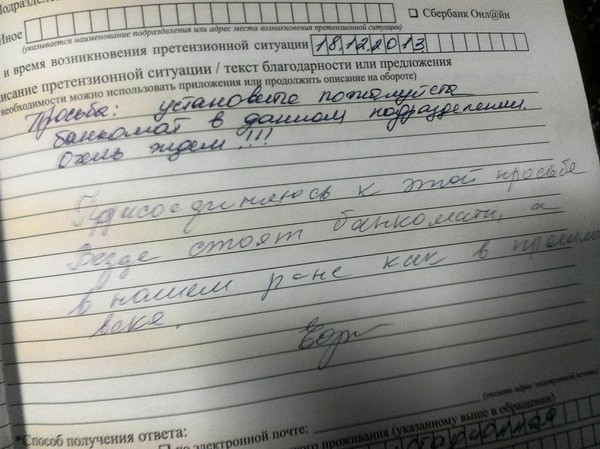 Подразделение
☐ Сбербанк Онл@йн
Иное
(указывается наименование подразделения или адрес места возникновения претензионной ситуации)
и время возникновения претензионной ситуации 18.12.2013
писание претензионной ситуации / текст благодарности или предложения
необходимости можно использовать приложения или продолжить описание на обороте)
Просьба: установите пожалуйста
банкомат в данном подразделении.
Очень ждем!!!
Присоединяюсь к этой просьбе
Везде стоят банкоматы, а
в нашем как в прошлом
веке.
(указать адрес электронной почты)
*Способ получения ответа:
☐ по электронной почте:
ного проживания (указанному выше в обращении)